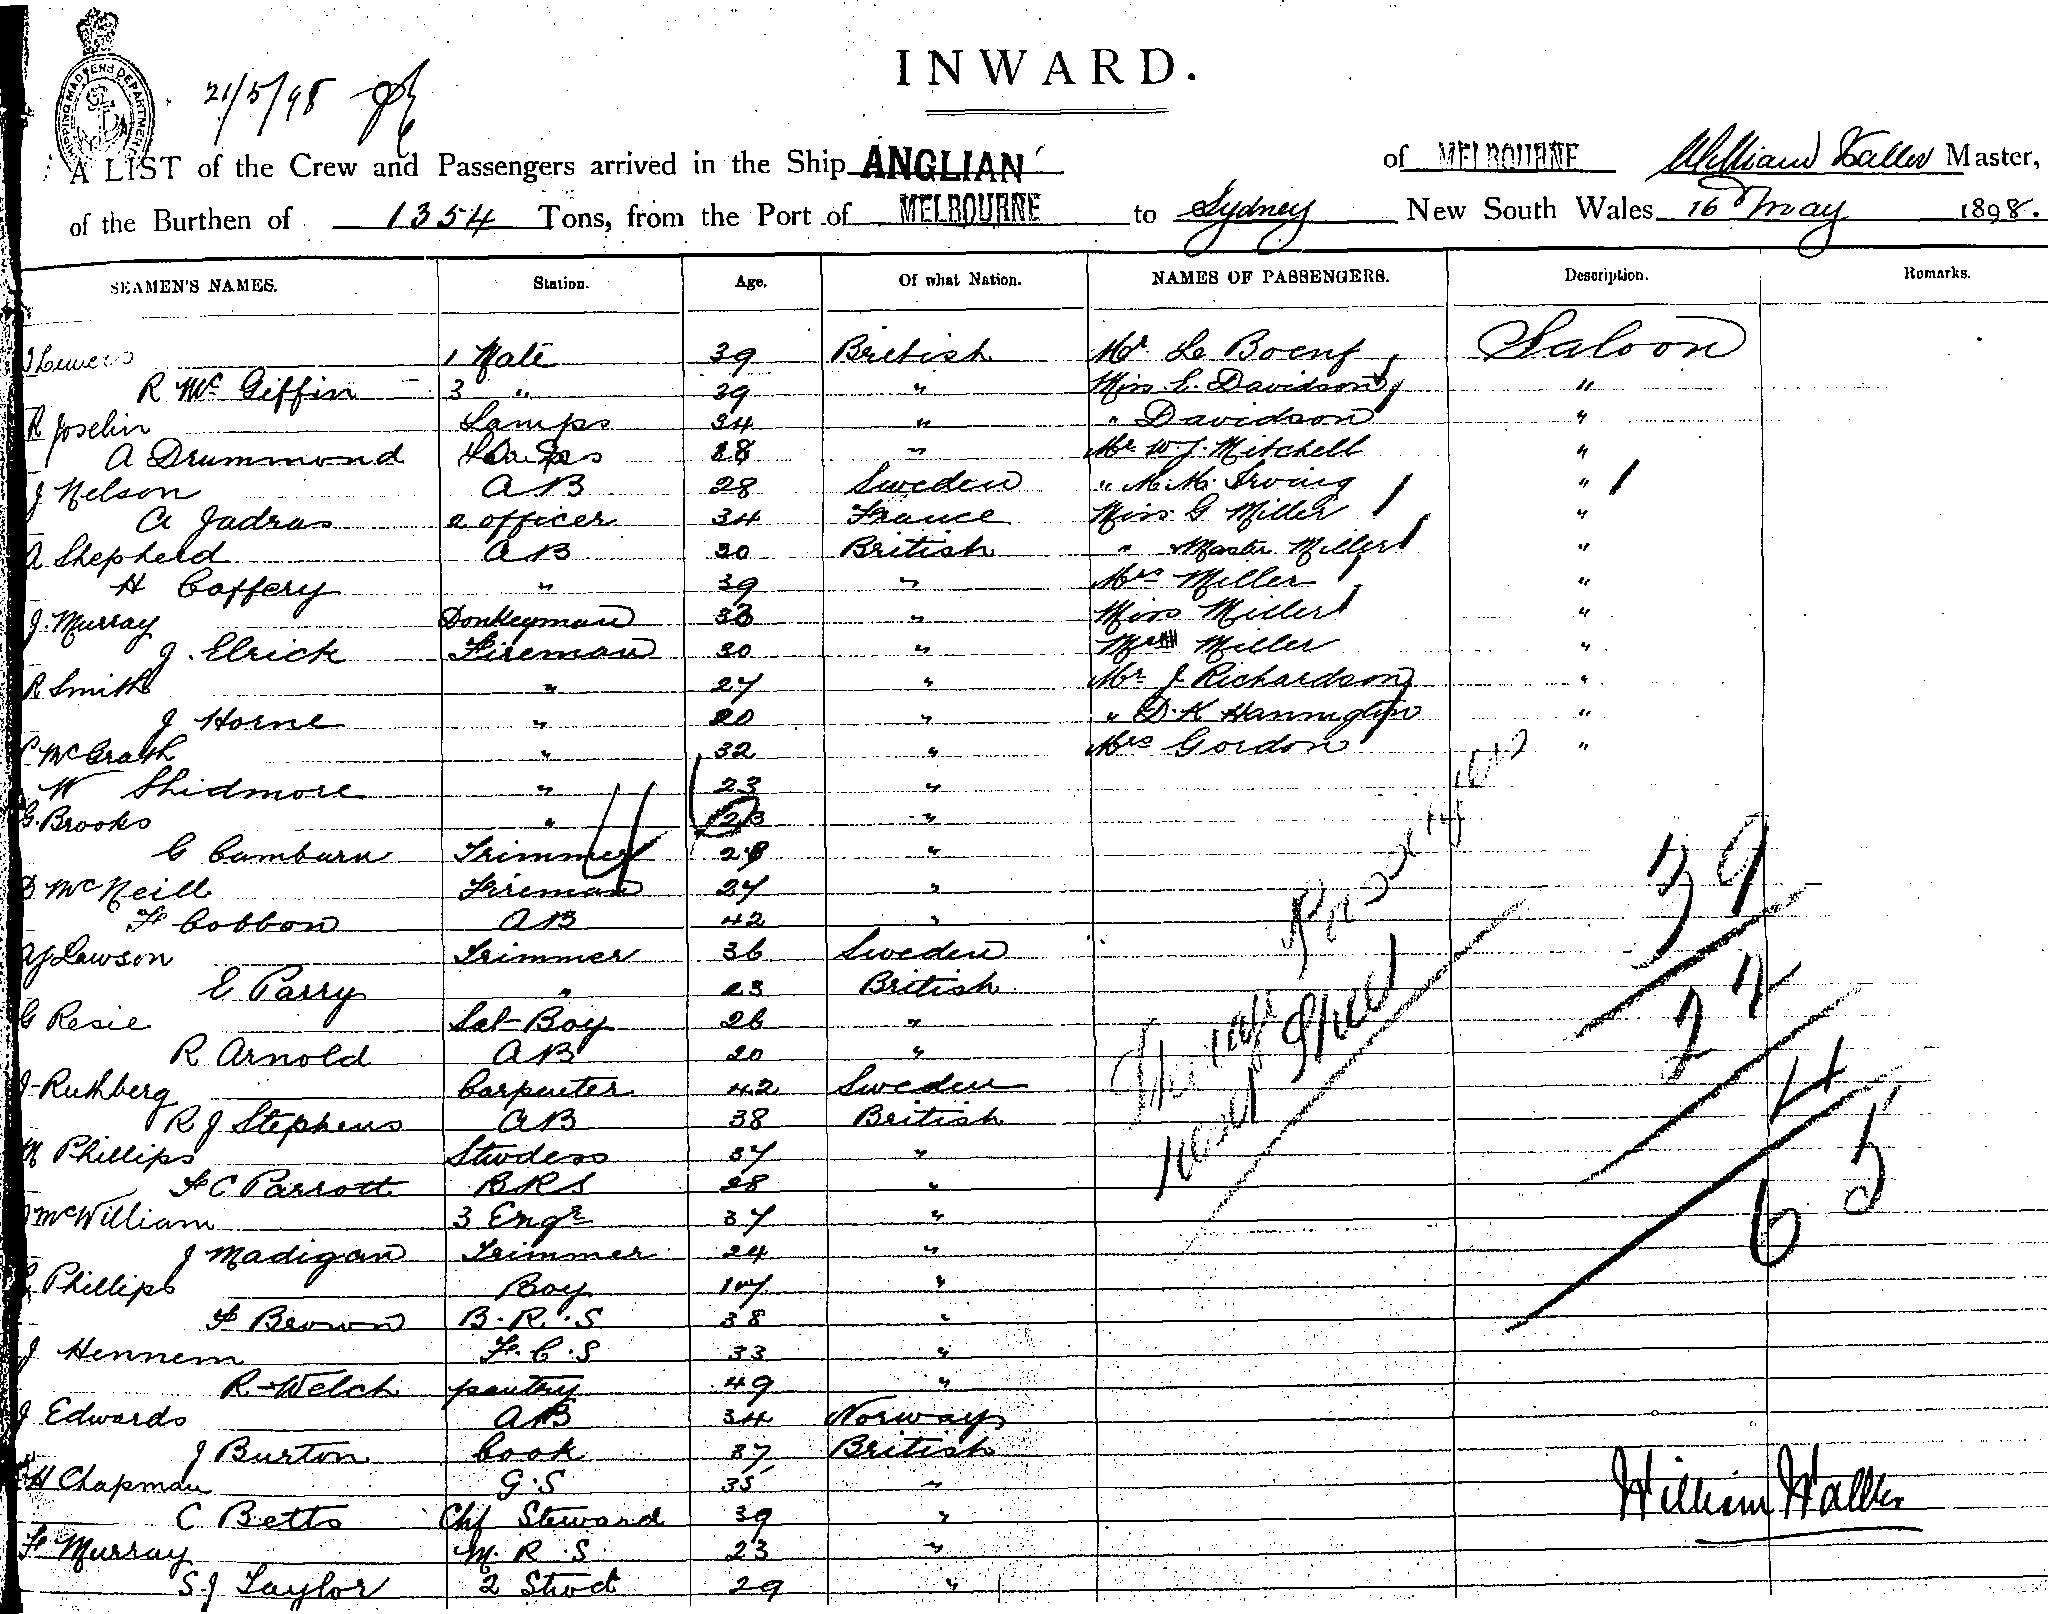 21/5/98
INWARD.
A LIST of the Crew and Passengers arrived in the Ship ANGLIAN of MELBOURNE William Waller Master,
of the Burthen of 1354 Tons, from the Port of MELBOURNE to Sydney New South Wales 16 May 1898.
SEAMEN'S NAMES. Station. Age. Of what Nation. NAMES OF PASSENGERS. Description. Remarks.
1 Mate 39 British Mr Le Boeuf Saloon
R McGiffin 3 " 39 " Miss L. Davidson "
R Joselin Lamps 34 " " Davidson "
A Drummond 28 " Mr W. J. Mitchell "
J Nelson AB 28 Sweden " M. M. Irving "
A Jadras 2 officer 34 France Miss G Miller "
A Shepherd AB 20 British " Master Miller "
H Caffery " 39 " Mrs Miller "
J. Murray Donkeyman 33 " Miss Miller "
J. Elrick Fireman 30 " Miller "
R Smith " 27 " Mr J Richardson "
J Horne " 20 " " D. K Hannigtin "
McGrath " 32 " Mrs Gordon "
W Skidmore " 23 "
G. Brooks " 23 "
C Camburn Trimmer 4 "
D McNeill Fireman 27 " 39
F Cobbon AB 42 "
A J Lawson Trimmer 36 Sweden
E Parry " 23 British 22
G Resie Sal-Boy 26 "
R Arnold AB 20 "
J Ruthberg Carpenter 42 Sweden 4
R J Stephens AB 38 British
M Phillips Stwdess 37 "
F C Parrott BRS 28 " 65
J McWilliam 3 Engr 37 "
J Madigan Trimmer 24 "
Phillips Boy 17 "
F Brown B. R. S 38 "
J Hennem F. C. S 33 "
R Welch pantry 49 "
J Edwards AB 34 Norway
J Burton Cook 37 British
H Chapman G. S 35 "
William Waller
C Betts Chf Steward 39 "
F Murray M. R. S 23 "
S. J Taylor 2 Stwd 29 "